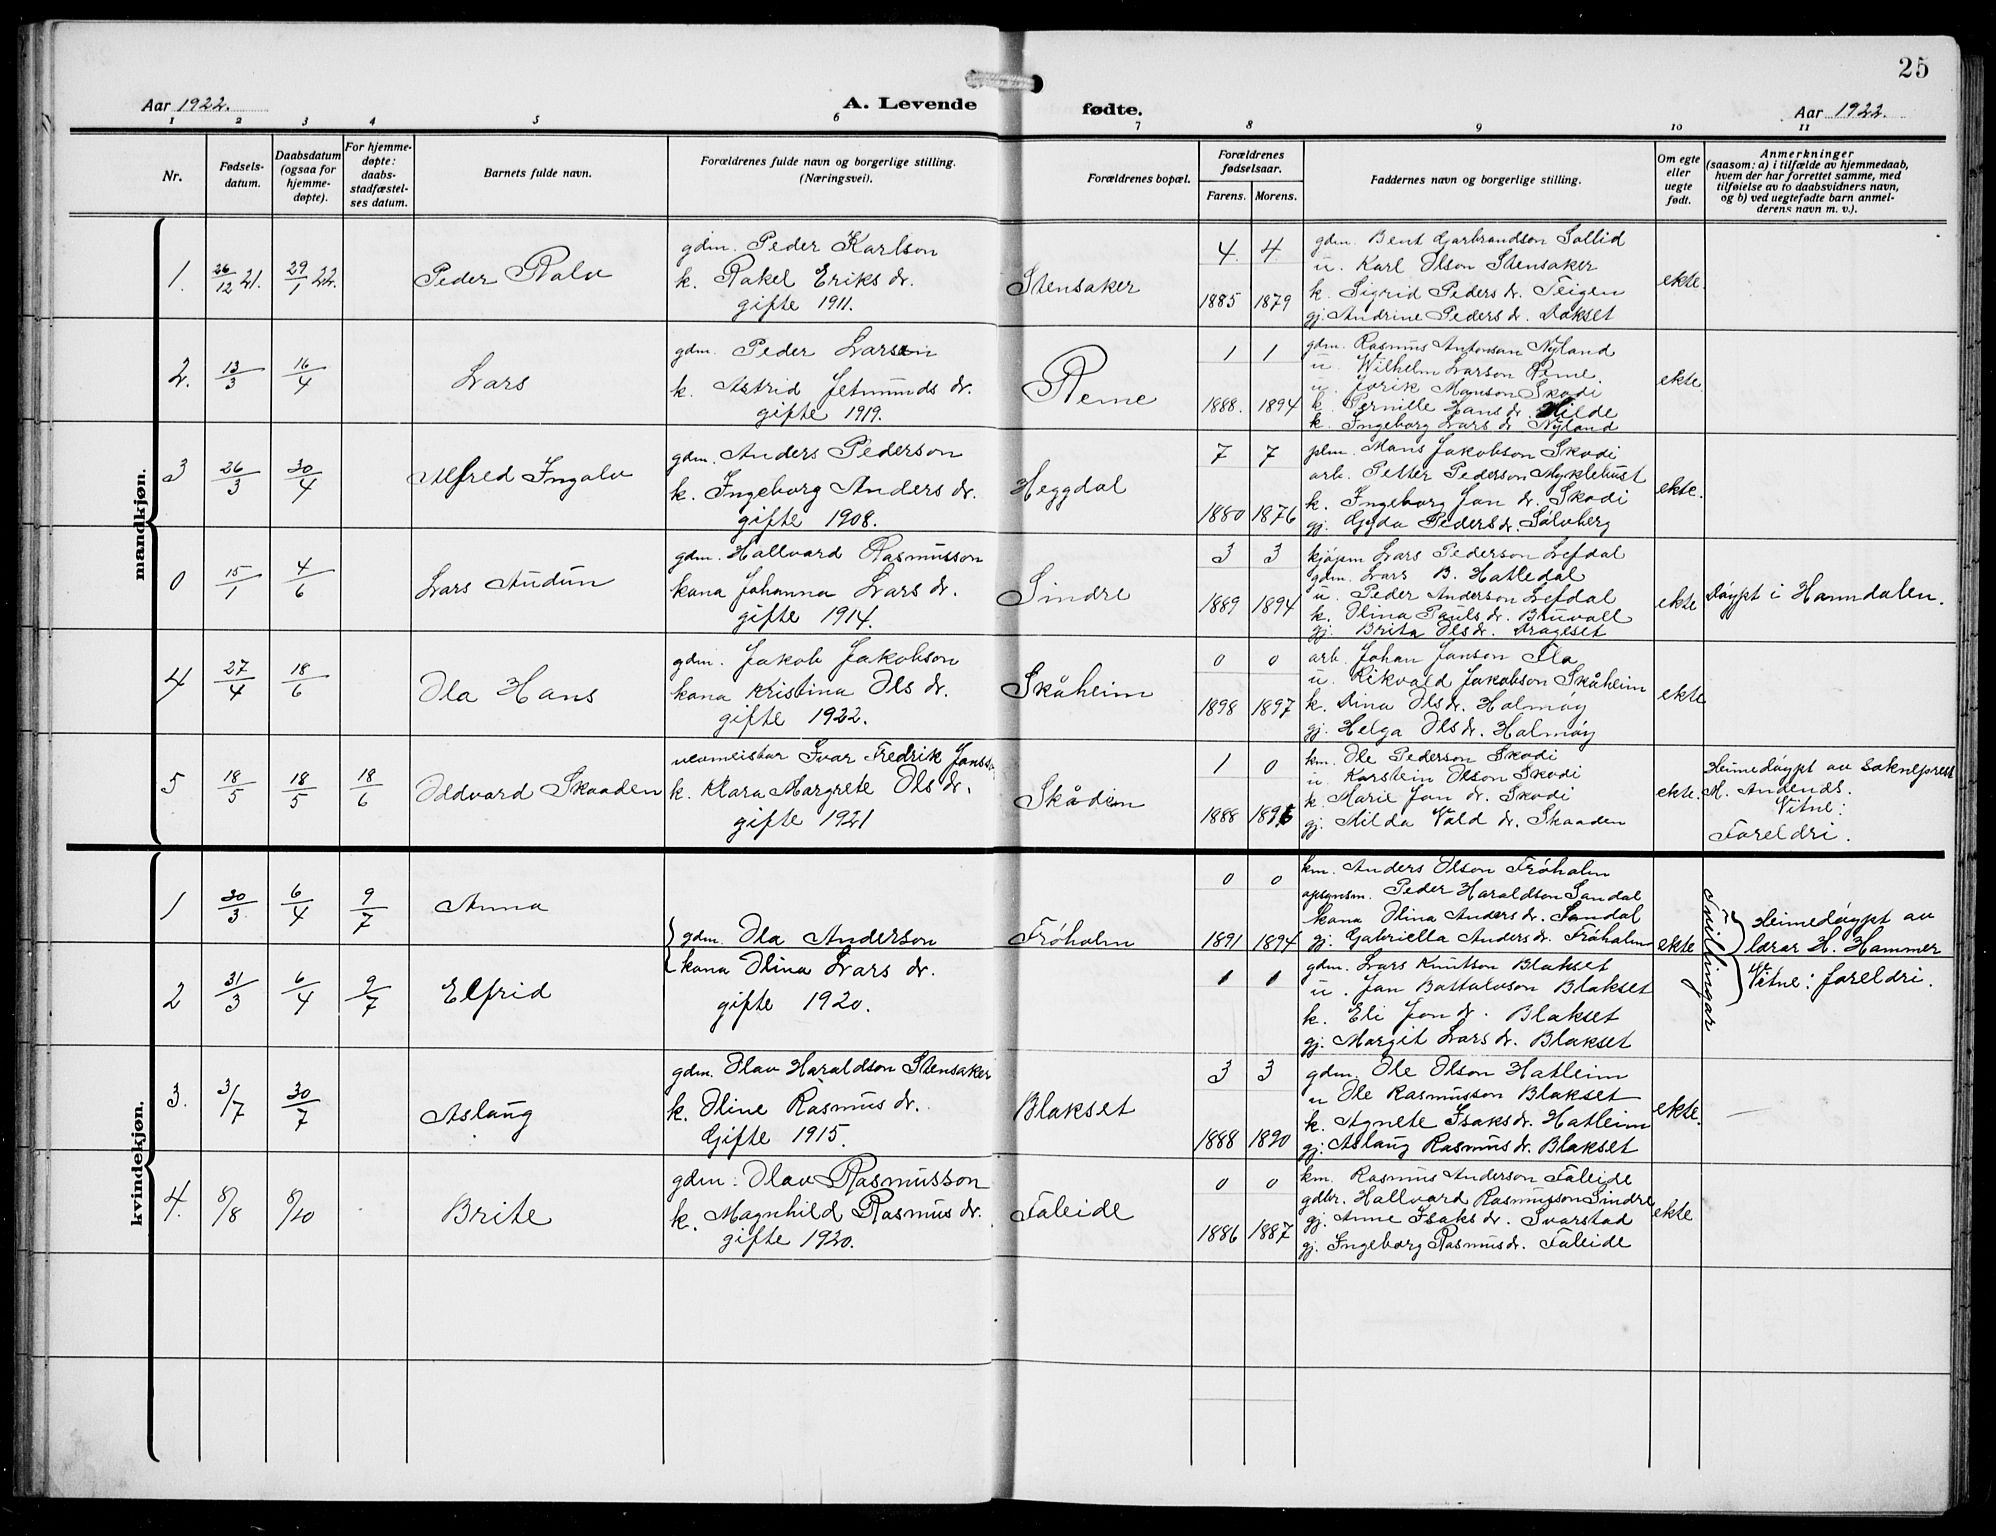 25
Aar 1922.
A. Levende
fødte.
Aar 1922.
1 2 3 4 5 6 7 8 9 10 11
Nr.
Fødsels-
datum.
Daabsdatum
(ogsaa for
hjemme-
døpte).
For hjemme-
døpte:
daabs-
stadfæstel-
ses datum.
Barnets fulde navn.
Forældrenes fulde navn og borgerlige stilling.
(Næringsvei).
Forældrenes bopæl.
Forældrenes
fødselsaar.
Farens. Morens.
Faddernes navn og borgerlige stilling.
Om egte
eller
uegte
født.
Anmerkninger
(saasom: a) i tilfælde av hjemmedaab,
hvem der har forrettet samme, med
tilføielse av to daabsvidners navn,
og b) ved uegtefødte barn anmel-
derens navn m. v.).
mandkjøn.
1. 26/12 21. 29/1 22. Peder Ralv
gdm. Peder Karlson
k. Rakel Eriks dr.
gifte 1911.
Stensaker
4 4
1885 1879
gdm. Bent Garbrandson Sollid
u. Karl Olson Stensaker
k. Sigrid Peders dr. Teigen
gj. Andrine Peders dr. Lokset
ekte.
2. 13/3 16/4 Lars
gdm. Peder Larson
k. Astrid Jetmunds dr.
gifte 1919.
Reme
1 1
1888. 1894
gdm. Rasmus Antonson Nyland
u. Wilhelm Larson Reme
u. Jorik Monson Skodi
k. Pernille Hans dr. Hilde
k. Ingeborg Lars dr. Nyland
ekte.
3 26/3 30/4 Alfred Ingalv
gdm. Anders Pederson
k. Ingeborg Anders dr.
gifte 1908.
Heggdal
7 7
1880 1876
plm. Mons Jakobson Skodi
arb. Petter Pederson Myklebust
k. Ingeborg Jon dr. Skodi
gj. Gyda Peders dr. Sølvberg
ekte.
0 15/1 4/6 Lars Audun
gdm. Hallvard Rasmusson
kona Johanna Lars dr.
gifte 1914.
Sindre
3 3
1889 1894
kjøpm Lars Pederson Lefdal
gdm. Lars B. Hatledal
u. Peder Anderson Lefdal
k. Olina Pauls dr. Bruvoll
gj. Brita Ols dr. Drageset
ekte
Døypt i Hornndalen.
4 27/4 18/6 Ola Hans
gdm. Jakob Jakobson
kona Kristina Ols dr.
gifte 1922.
Skåheim
0 0
1898 1897
arb. Johan Janson Flo
u. Rikvald Jakobson Skåheim
k. Dina Ols dr. Holmøy
gj. Helga Ols dr. Holmøy
ekte
5 18/5 18/5 18/6 Oddvard Skaaden
vevmeistar Ivar Fredrik Jansson
k. Klara Margrete Ols dr.
gifte 1921
Skådien
1 0
1888 1896
km. Ole Pederson Skodi
u. Karstein Olson Skodi
k. Marie Jon dr. Skodi
gj. Milda Vald dr. Skaaden
ekte.
Heimedøypt av soknéprest
M. Andenæs.
Vitne:
Foreldri.
kvindekjøn.
1 30/3 6/4 9/7 Anna
gdm. Ola Anderson
kona Olina Lars dr.
gifte 1920.
Frøholm
0 0
1891 1894
km. Anders Olson Frøholm
opsynsm. Peder Haraldson Sandal
kona Olina Anders dr. Sandal
gj. Gabriella Anders dr. Frøholm
ekte
Tvillingar
Heimedøypt av
lærar H. Hammer
Vitne: foreldri.
2 31/3 6/4 9/7 Elfrid
1 1
gdm. Lars Knutson Blakset
u. Jon Bottolvson Blakset
k. Eli Jon dr. Blakset
gj. Margit Lars dr. Blakset
3. 3/7 30/7 Aslaug
gdm. Olav Haraldson Stensaker
k. Oline Rasmus dr.
Gifte 1915.
Blakset
3 3
1888 1890
gdm. Ole Olson Hatleim
u Ole Rasmusson Blakset
k. Agnete Isaks dr. Hatleim
gj. Aslaug Rasmus dr. Blakset
ekte.
4. 8/8 8/10 Brite
gdm. Olav Rasmusson
k. Magnhild Rasmus dr.
gifte 1920.
Faleide
0 0
1886 1887
km. Rasmus Anderson Faleide
gdbr. Hallvard Rasmusson Sindre
gj. Anne Isaks dr. Svarstad
gj. Ingeborg Rasmus dr. Faleide
ekte